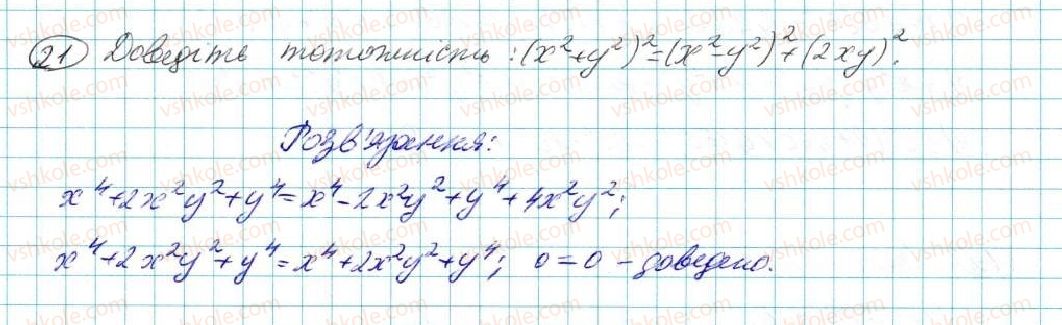 21 Доведіть тотожність: (x²+y²)²=(x²-y²)²+(2xy)².
Розв'язання:
x⁴+2x²y²+y⁴=x⁴-2x²y²+y⁴+4x²y²;
x⁴+2x²y²+y⁴=x⁴+2x²y²+y⁴; 0=0 - доведено.